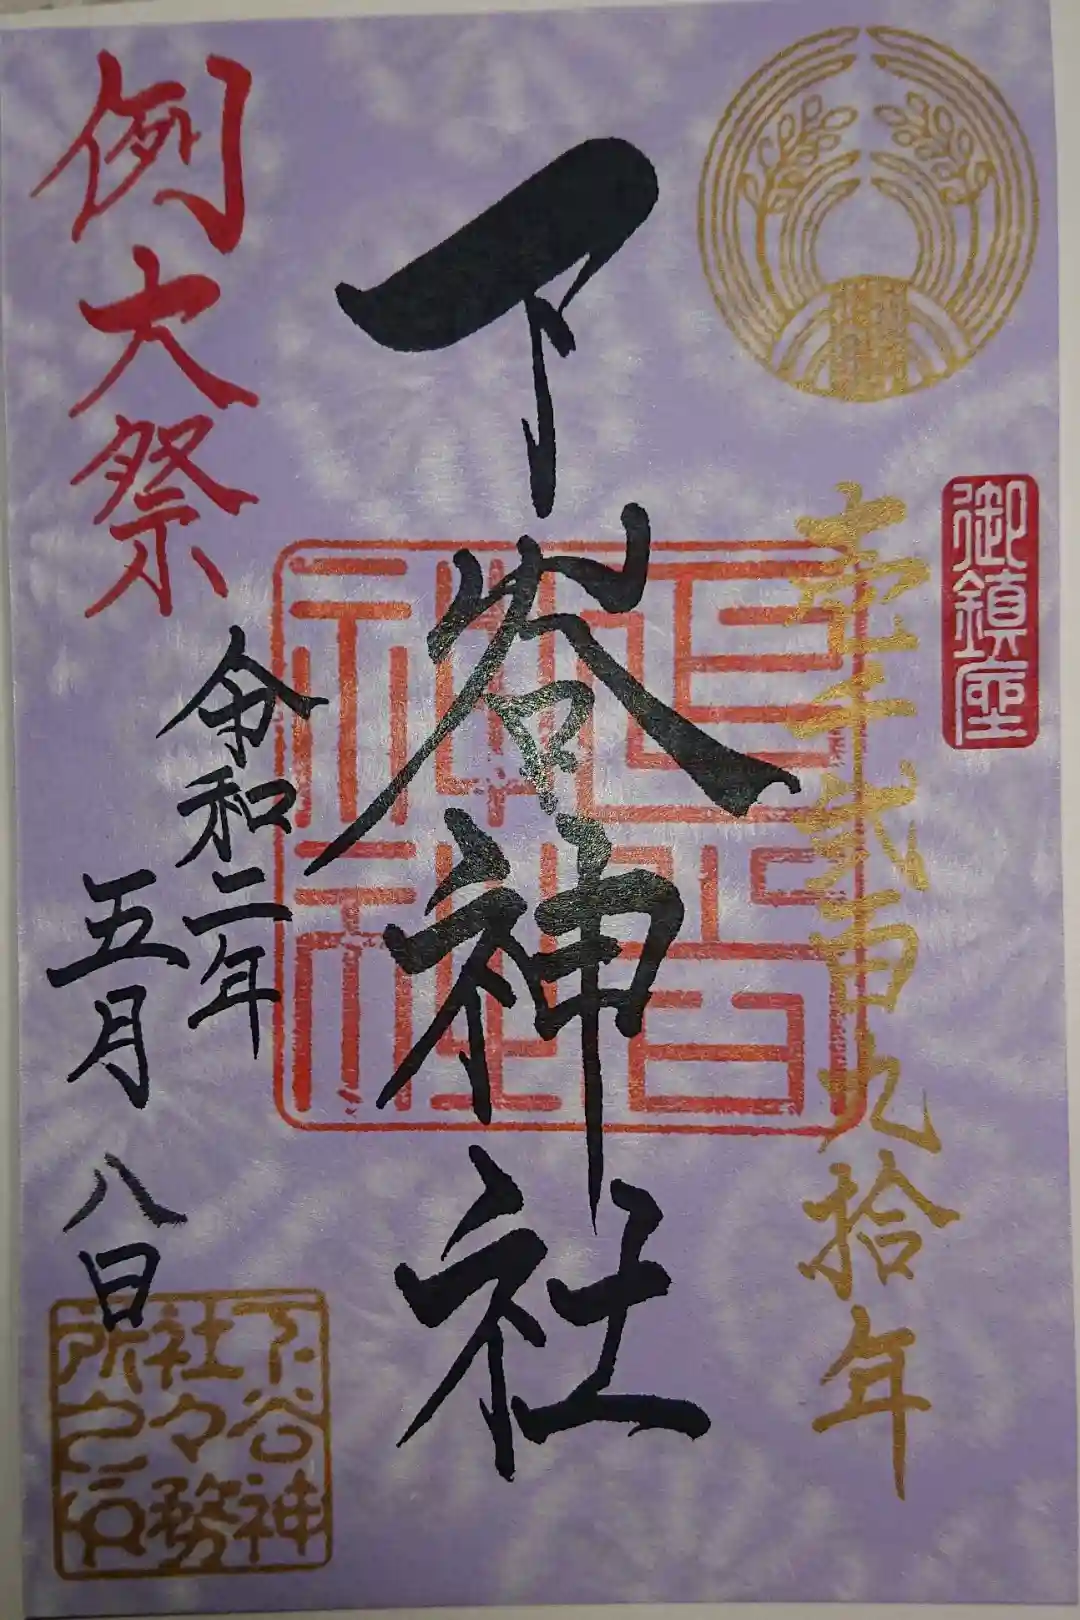 御鎮座
壱千弐百九拾年
下谷神社
例大祭
令和二年
五月八日
下谷神
社々務
所之印